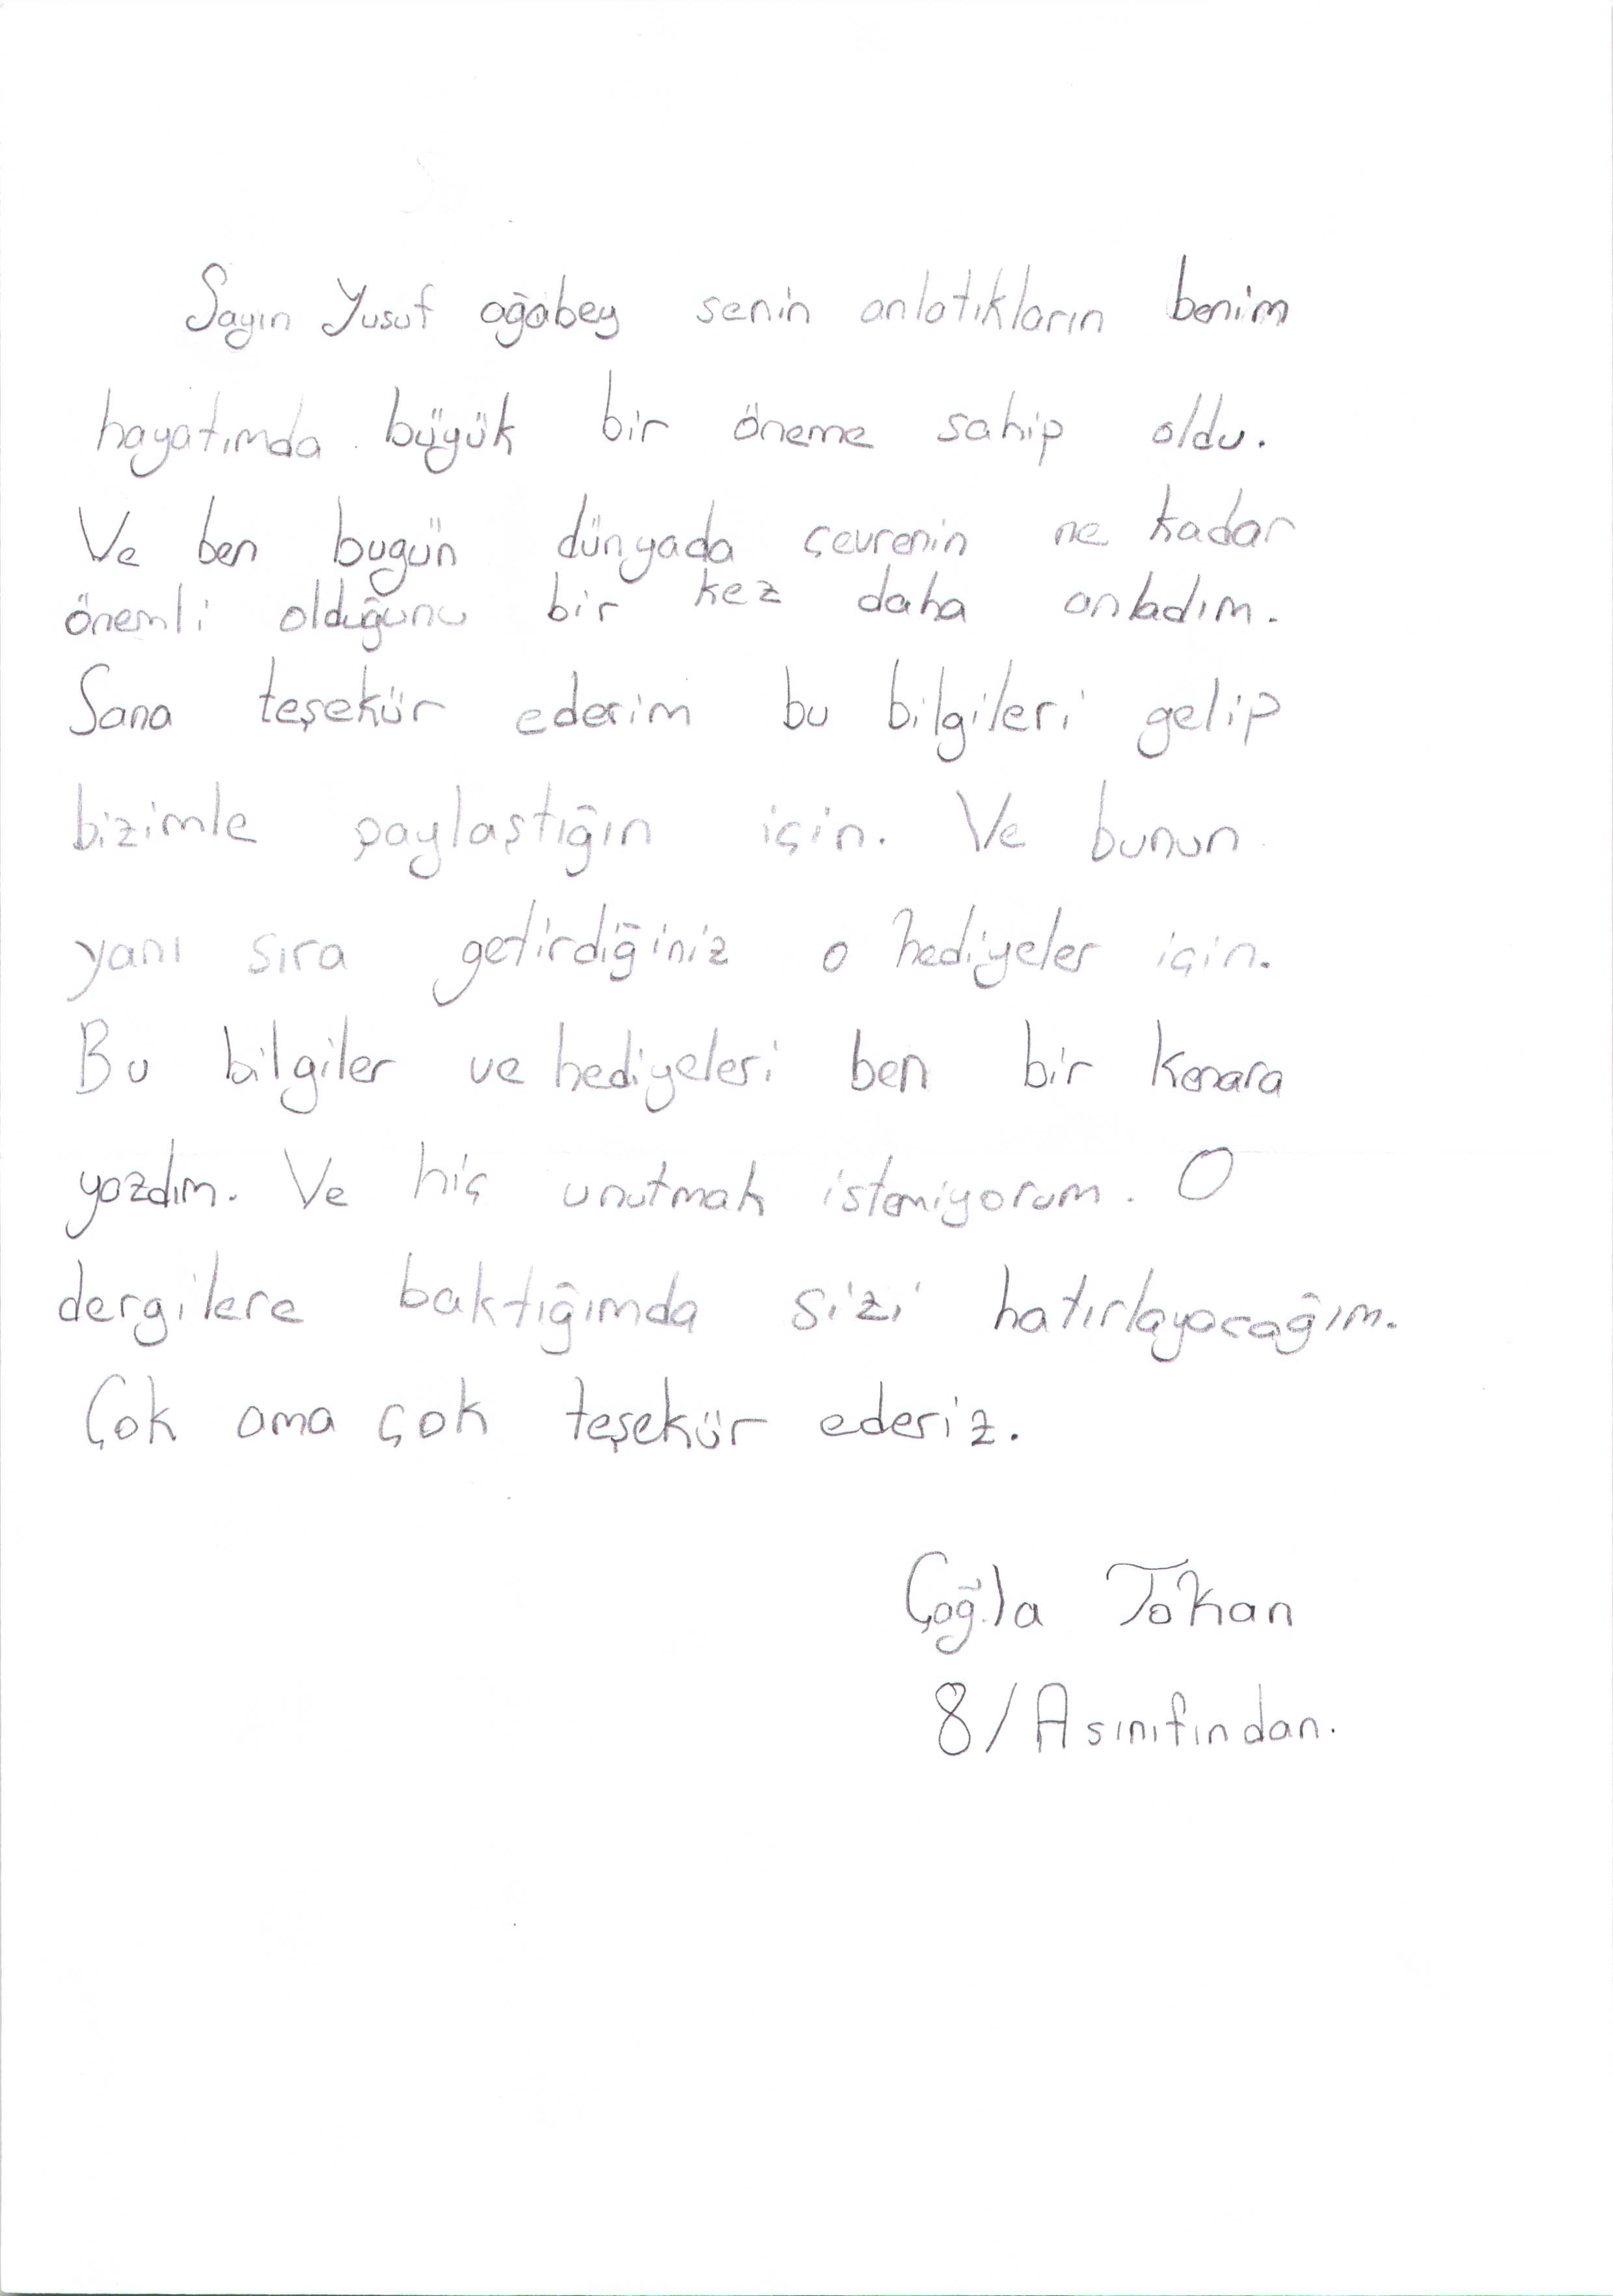 Sayın Yusuf ağabey senin anlatıkların benim
hayatımda büyük bir öneme sahip oldu.
Ve ben bugün dünyada çevrenin ne kadar
önemli olduğunu bir kez daha anladım.
Sana teşekür ederim bu bilgileri gelip
bizimle paylaştığın için. Ve bunun
yanı sıra getirdiğiniz o hediyeler için.
Bu bilgiler ve hediyeleri ben bir kenara
yazdım. Ve hiç unutmak istemiyorum. O
dergilere baktığımda sizi hatırlayacağım.
Çok ama çok teşekür ederiz.
Çağla Tokan
8/A sınıfından.